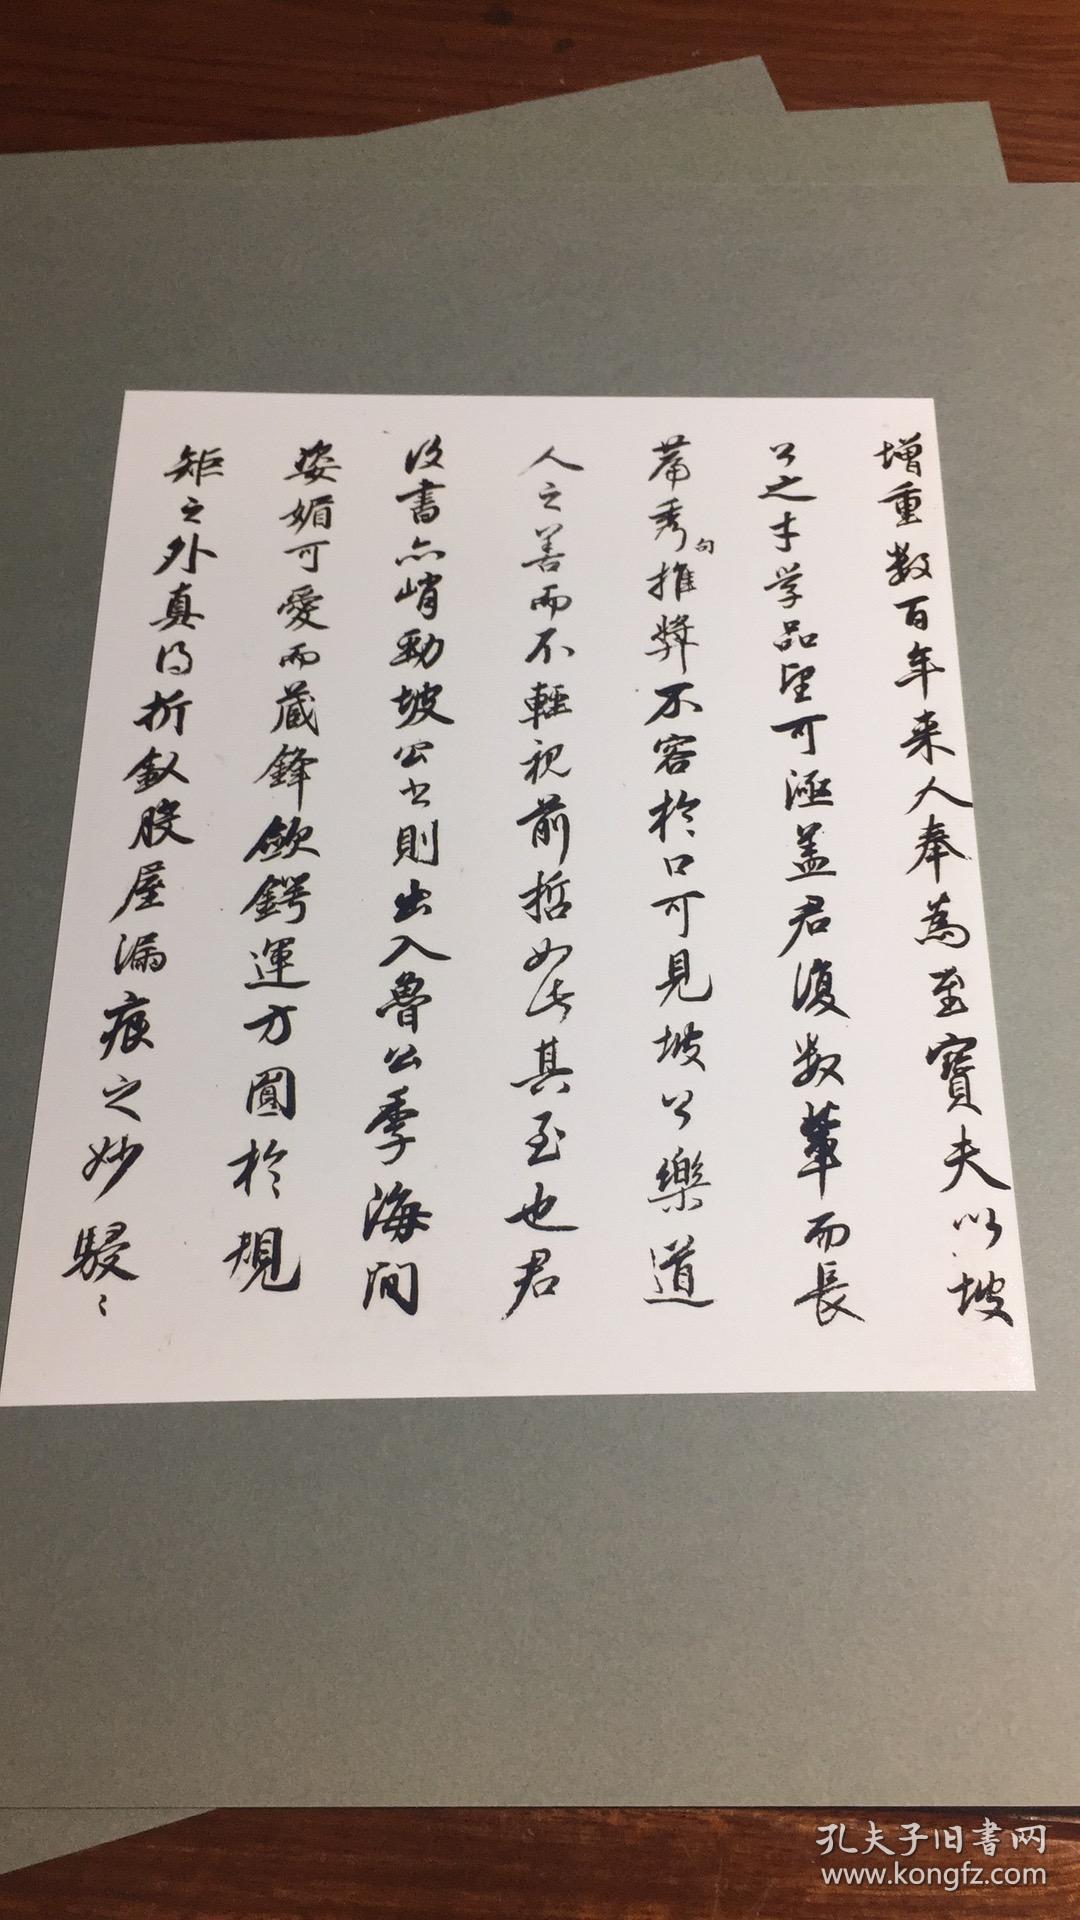 增重数百年来人奉為至寶夫以坡
公之才学品望可涵盖君復数輩而長
篇秀句推獎不容於口可見坡公樂道
人之善而不輕視前哲如此其至也君
復書亦峭勁坡公書則出入魯公季海間
姿媚可愛而蔵鋒歛鍔運方圓於規
矩之外真得折釵股屋漏痕之妙駸〻
孔夫子旧書网
www.kongfz.com